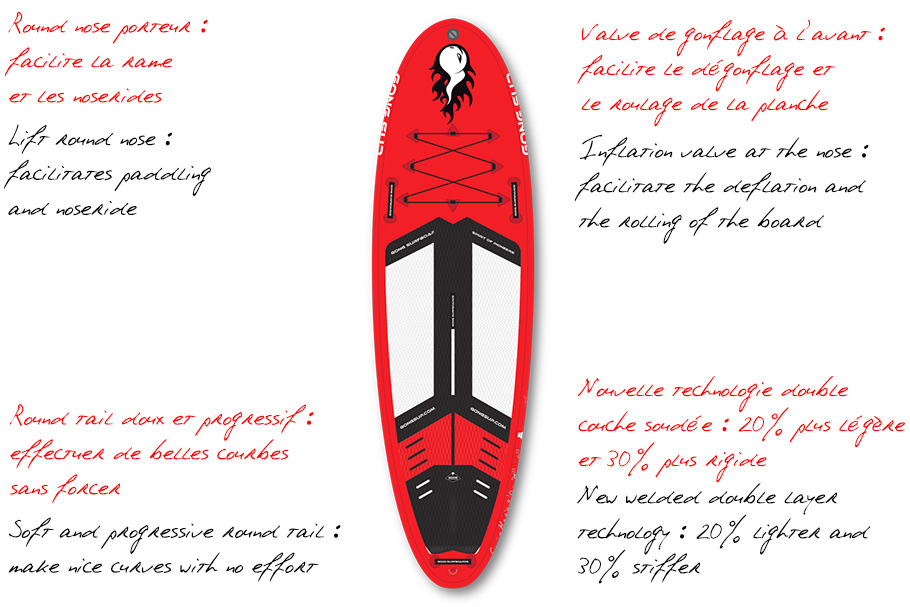 Round nose porteur :
facilite la rame
et les noserides
Lift round nose :
facilitates paddling
and noseride
Valve de gonflage à l'avant :
facilite le dégonflage et
le roulage de la planche
Inflation valve at the nose :
facilitate the deflation and
the rolling of the board
GONG SUP
GONG SUP
GONG SURFBOA
SPIRIT OF PIONEERS
GONGSUP.COM
GONGSUP.COM
Round tail doux et progressif :
effectuer de belles courbes
sans forcer
Soft and progressive round tail :
make nice curves with no effort
Nouvelle technologie double
couche soudée : 20% plus légère
et 30% plus rigide
New welded double layer
technology : 20% lighter and
30% stiffer